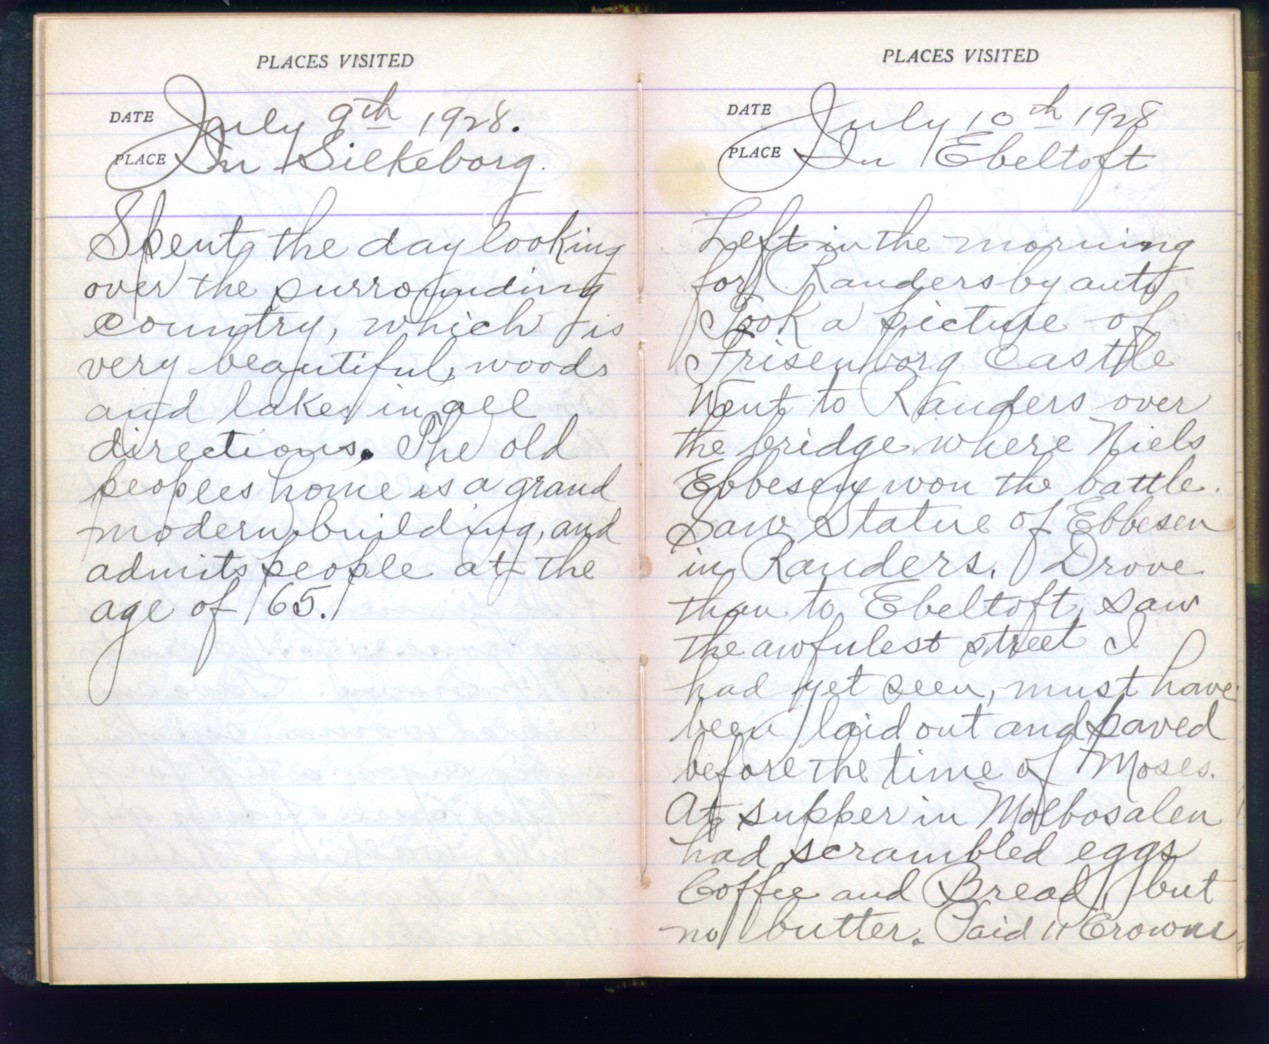 PLACES VISITED
DATE July 9th 1928.
PLACE In Silkeborg.
Spent the day looking
over the surrounding
country, which is
very beautiful, woods
and lakes in all
directions. The old
peoples home is a grand
modern building, and
admits people at the
age of 65.
PLACES VISITED
DATE July 10th 1928
PLACE In Ebeltoft
Left in the morning
for Randers by auto
Took a picture of
Frisenborg Castle
Went to Randers over
the bridge where Niels
Ebbesen won the battle.
Saw Statue of Ebbesen
in Randers. Drove
than to Ebeltoft, saw
the awfulest street I
had yet seen, must have
been laid out and paved
before the time of Moses.
At supper in Molbosalen
had scrambled eggs
Coffee and Bread, but
no butter. Paid 11 Crowns